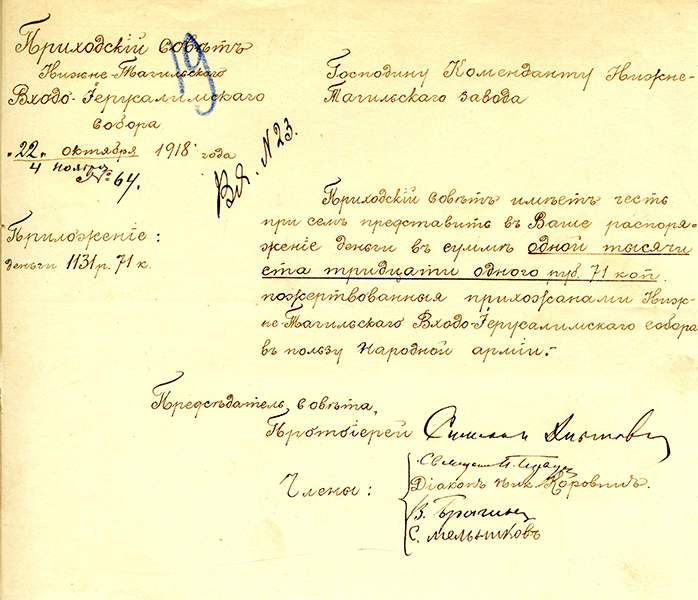 Приходскій совѣтъ
Нижне-Тагильскаго
Входо-Іерусалимскаго
собора
"22" октября 1918 года
4 ноября
№ 64.
19
Вх. N 23.
Приложеніе:
деньги 1131 р. 71 к.
Господину Коменданту Нижне-
Тагильскаго завода
Приходскій совѣтъ имѣетъ честь
при семъ представить въ Ваше распоря-
женіе деньги въ суммѣ одной тысячи
ста тридцати одного руб. 71 коп.
пожертвованныя прихожанами Ниж-
не-Тагильскаго Входо-Іерусалимскаго собора
въ пользу Народной арміи.-
Предсѣдатель совѣта,
Протоіерей
Члены:
Діаконъ Ник. Коровинъ.
В. Брагинъ
С. Мельниковъ